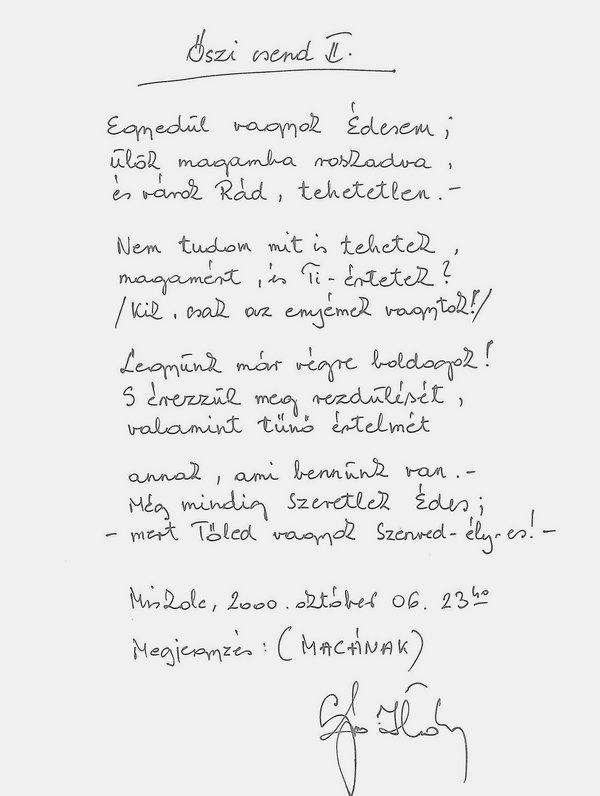 Őszi csend II.
Egyedül vagyok Édesem;
ülök magamba roskadva,
és várok Rád, tehetetlen.-
Nem tudom mit is tehetek,
magamért, és Ti-értetek?
/Kik, csak az enyémek vagytok!/
Legyünk már végre boldogok!
S érezzük meg rezdülését,
valamint tűnő értelmét
annak, ami bennünk van.-
Még mindig Szeretlek Édes;
- mert Tőled vagyok Szenved-ély-es! -
Miskolc, 2000. október 06. 23⁴⁰
Megjegyzés: (MACÁNAK)